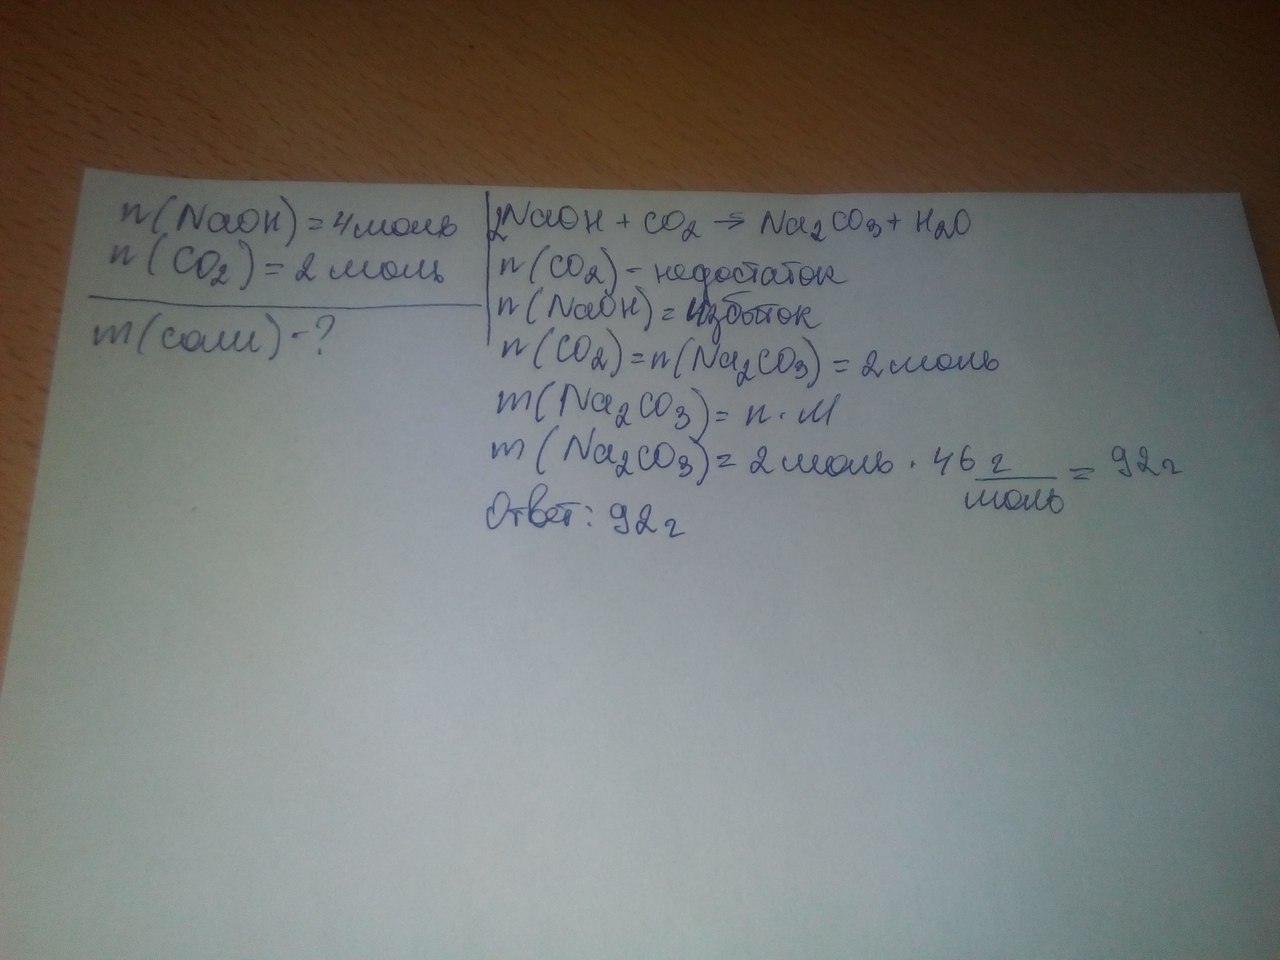 n(NaOH) = 4 моль
n(CO2) = 2 моль
m(соли) - ?
2NaOH + CO2 → Na2CO3 + H2O
n(CO2) - недостаток
n(NaOH) = избыток
n(CO2) = n(Na2CO3) = 2 моль
m(Na2CO3) = n · M
m(Na2CO3) = 2 моль · 46 г/моль = 92 г
Ответ: 92 г